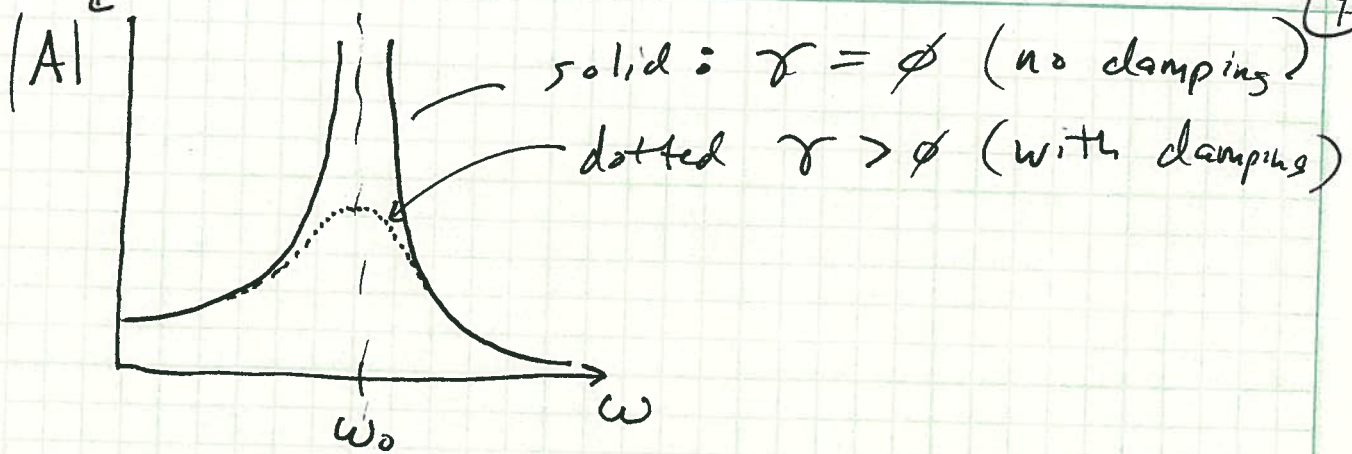 |A|²
solid : γ = ϕ (no damping)
dotted γ > ϕ (with damping)
ω
ω₀